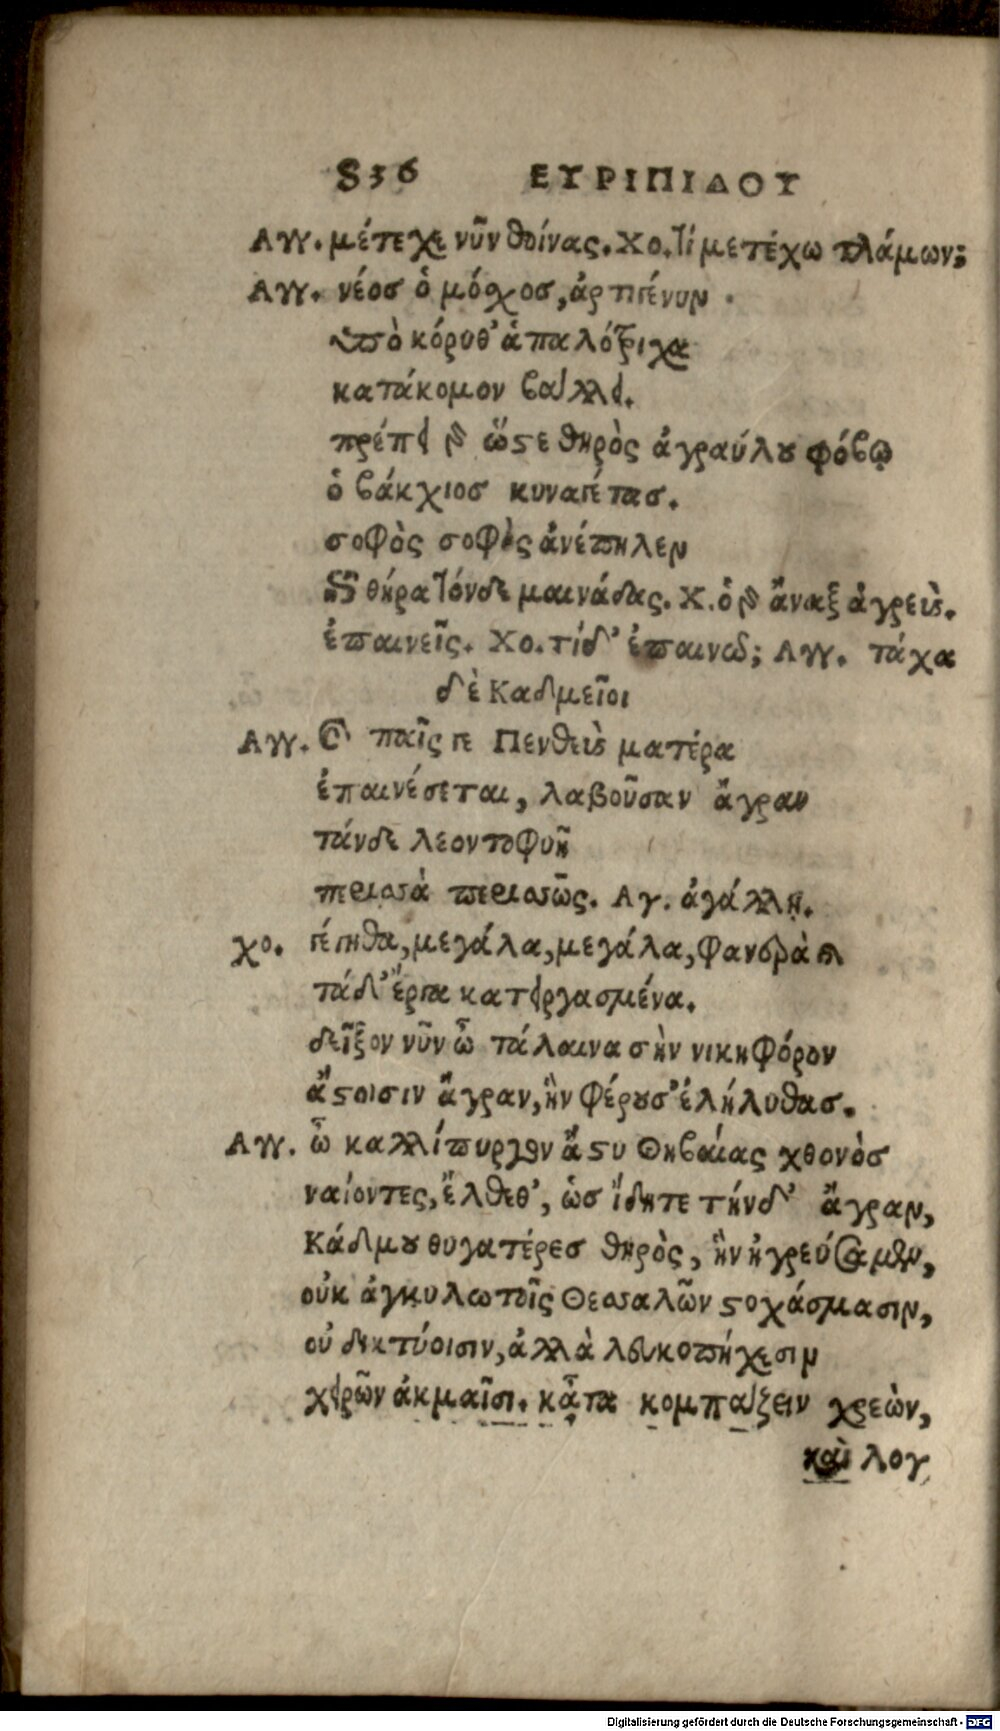 836 ΕΥΡΙΠΙΔΟΥ
Αγγ. μέτεχε νῦν θοίνας. Χο. Τί μετέχω τλάμων;
Αγγ. νέος ὁ μόσχος, ἄρτι γένυν
ὑπὸ κόρυθ’ ἁπαλότριχα
κατάκομον βάλλει.
πρέπει γὰρ ὥστε θηρὸς ἀγραύλου φόβῳ
ὁ βάκχιος κυναγέτας.
σοφὸς σοφὸς ἀνέπηλεν
ἐπὶ θήρα τόνδε μαινάδας. Χ. ὁ γὰρ ἄναξ ἀγρεύς.
ἐπαινεῖς. Χο. τί δ’ ἐπαινῶ; Αγγ. τάχα
δὲ Καδμεῖοι
Αγγ. καὶ παῖς γε Πενθεὺς ματέρα
ἐπαινέσεται, λαβοῦσαν ἄγραν
τάνδε λεοντοφυῆ
περισσὰ περισσῶς. Αγ. ἀγάλλῃ.
χο. γέγηθα, μεγάλα, μεγάλα, φανερὰ καὶ
τάδ’ ἔργα κατειργασμένα.
δεῖξον νῦν ὦ τάλαινα σὴν νικηφόρον
ἀστοῖσιν ἄγραν, ἣν φέρουσ’ ἐλήλυθας.
Αγγ. ὦ καλλίπυργον ἄστυ Θηβαίας χθονὸς
ναίοντες, ἔλθεθ’, ὡς ἴδητε τήνδ’ ἄγραν,
Κάδμου θυγατέρες θηρὸς, ἣν ἠγρεύσαμεν,
οὐκ ἀγκυλωτοῖς Θεσσαλῶν στοχάσμασιν,
οὐ δικτύοισιν, ἀλλὰ λευκοπήχεσιν
χειρῶν ἀκμαῖσι. κᾆτα κομπάζειν χρεὼν,
καὶ λογ
Digitalisierung gefördert durch die Deutsche Forschungsgemeinschaft - DFG